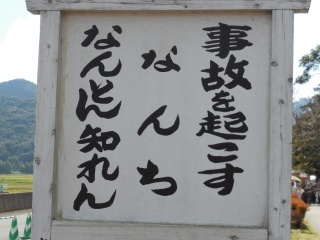 事故を起こす
なんち
なんとん知れん